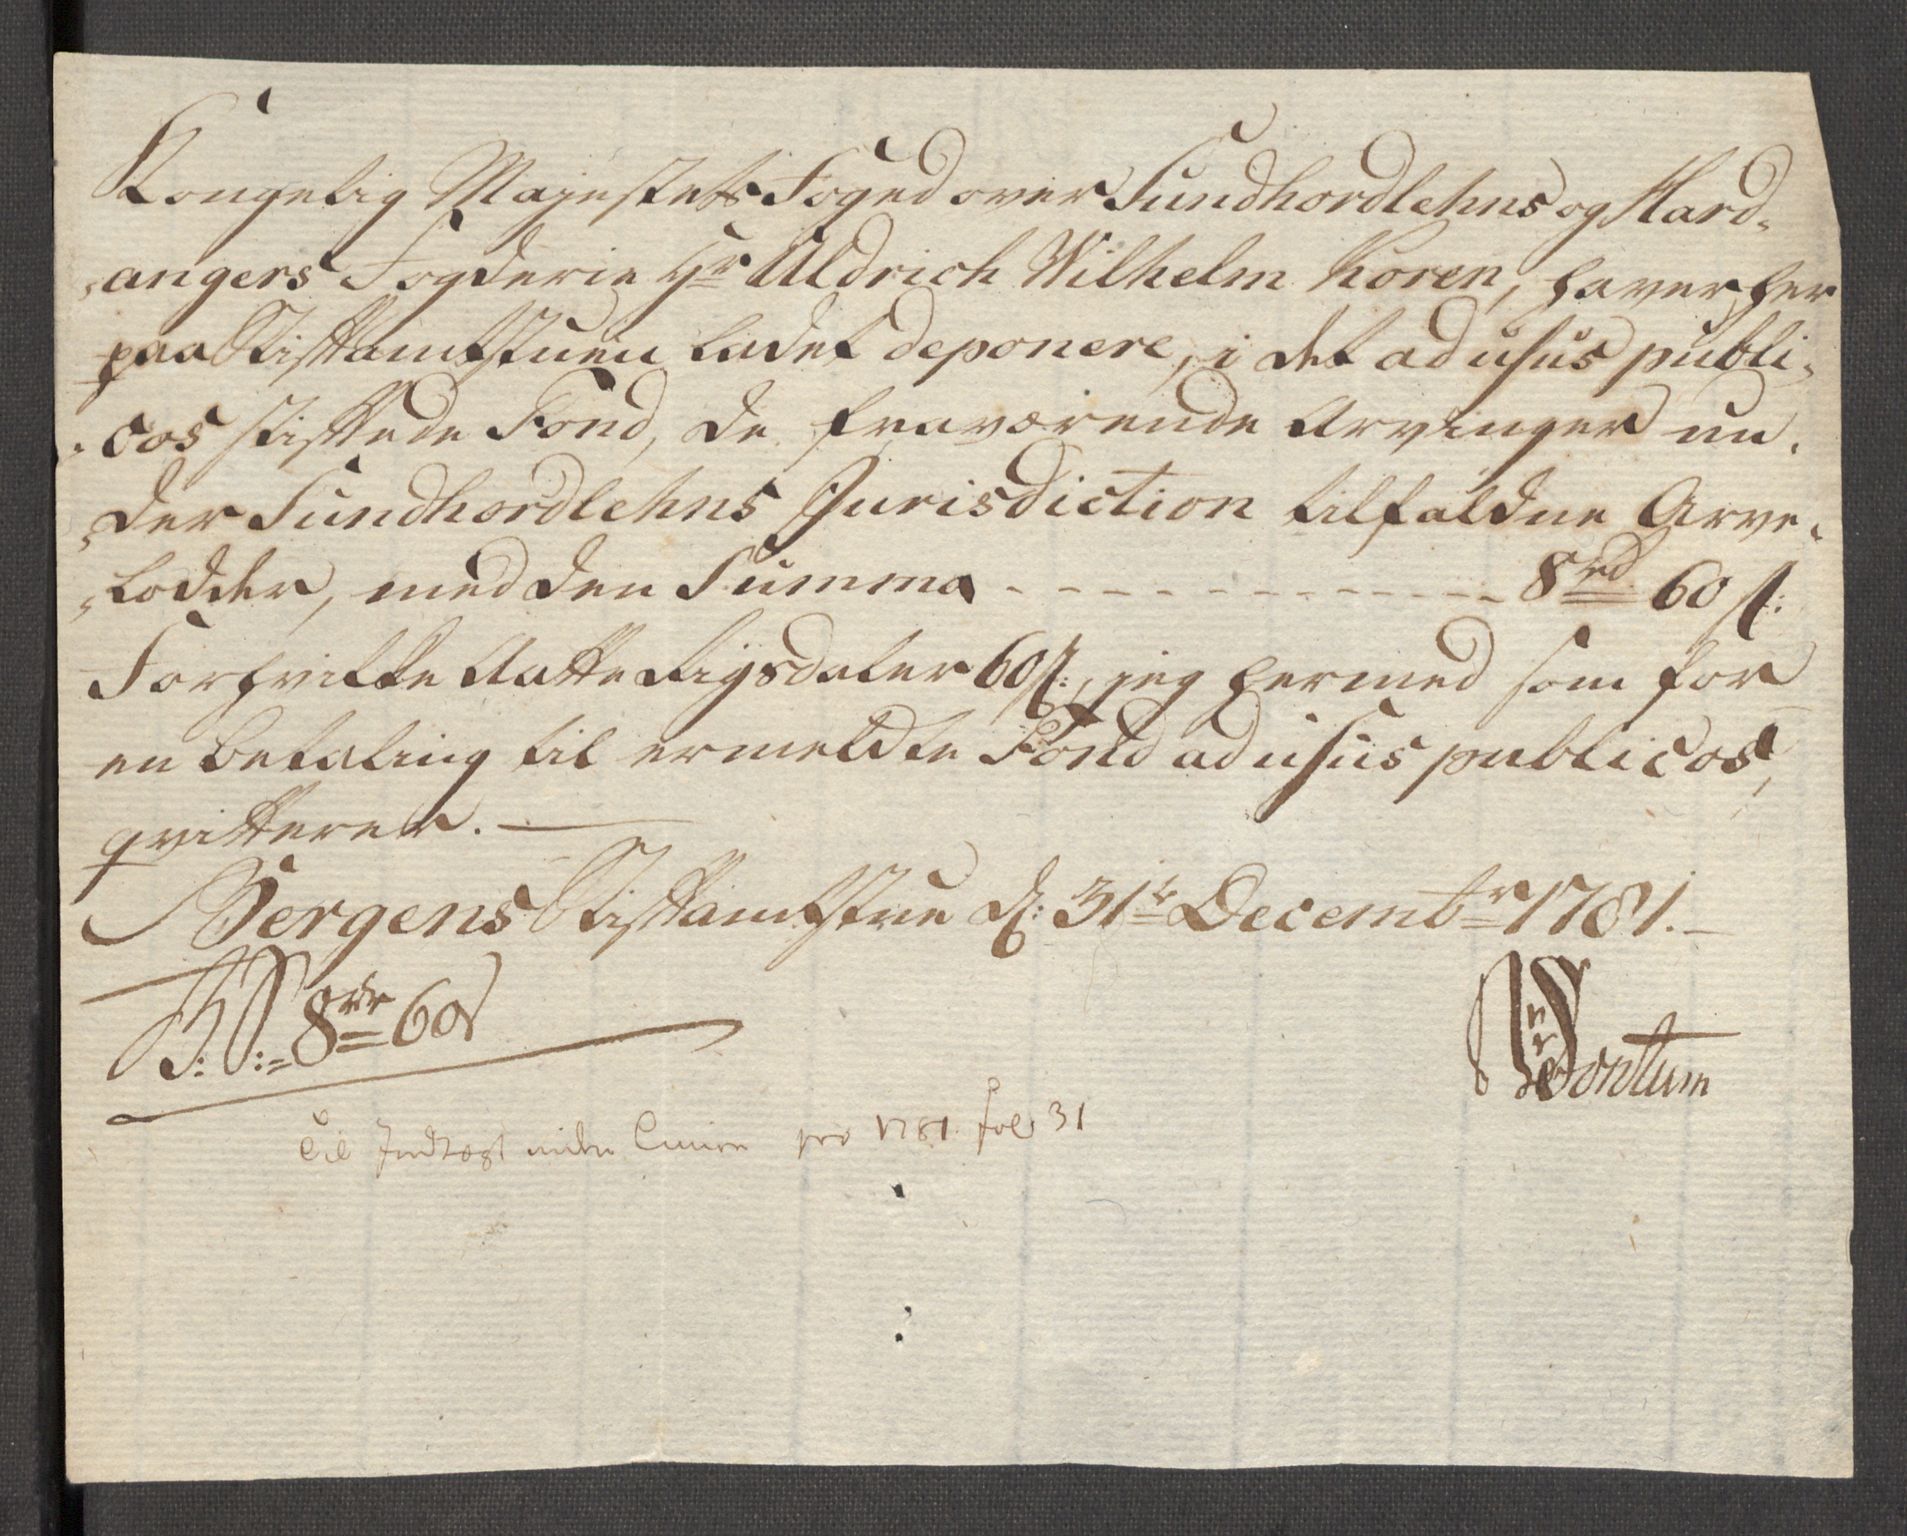 Kongelig Majestets Foged over Sundhordlehns og Hard-
angers Fogderie Hr Uldrich Wilhelm Koren, haver her
paa Stiftamtstuen ladet deponere, i det ad usus publi-
cos stiftede Fond, de fraværende Arvinger un-
der Sundhordlehns Jurisdiction tilfaldne Arve-
Lodder, med den Summa - - - - - - - - - - - - - 8rd 60 s:
For hvilke Aatte Rigsdaler 60 s:, jeg hermed som for
en betaling til ermeldte Fond ad usus publicos,
qvitterer. —
Bergens Stiftamtstue d: 31te Decembr 1781. —
8rdr 60s
Wontum
til Indtægt under pro 1781 fol 31